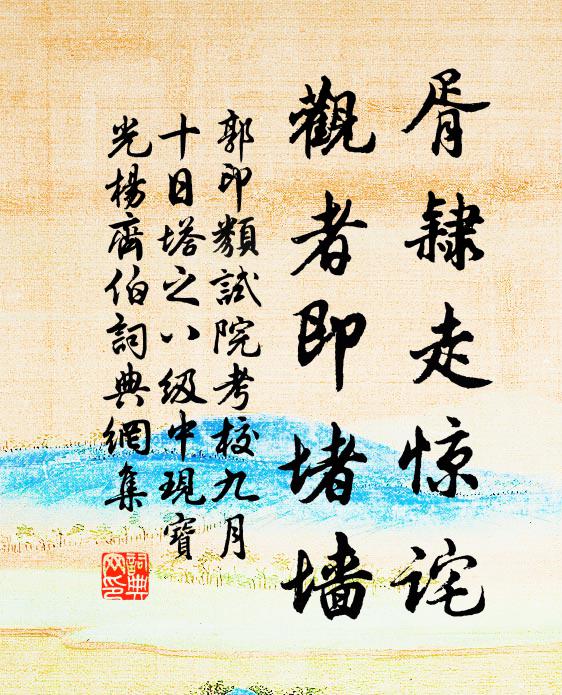 胥隸走惊诧
觀者即堵墙
郭印類試院考校九月
十日塔之八級中現寶
光楊齊伯詞典網集
詞典
网印